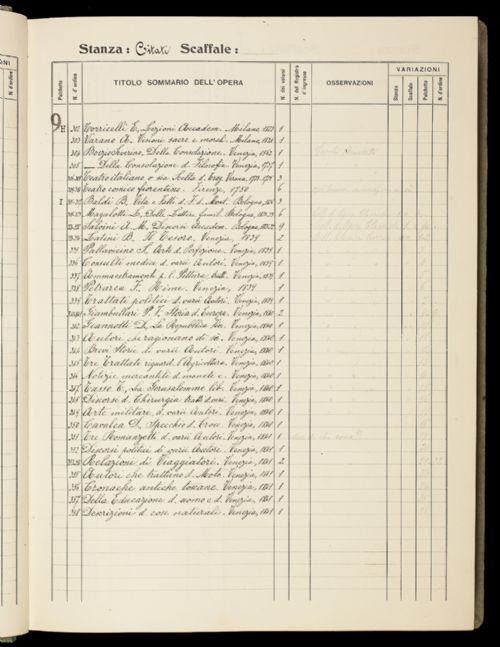 Stanza: Citati Scaffale:
VARIAZIONI
Palchetto N. d'ordine TITOLO SOMMARIO DELL'OPERA N. dei volumi N. del Registro d'ingresso OSSERVAZIONI Stanza Scaffale Palchetto N. d'ordine
9 H 302 Torricelli E, Lezioni Accadem. Milano, 1823 1
303 Varano A. Visioni sacre e morali. Milano, 1820 1
304 Boezio Severino, Della Consolazione. Venezia, 1
305 — Della Consolazione d. Filosofia. Venezia, 1737 1
Teatro italiano o sia Scelta d. Trag. Verona, 3
Teatro comico fiorentino. Firenze, 1750 6
I Baldi B. Vita e fatti d. F. d. Mont. Bologna, 3
Magalotti L, Delle Lettere famil. Bologna, 6
Salvini A. M, Discorsi Accadem. Bologna, 9
Latini B. Il Tesoro, Venezia, 1839
335 Pallavicino S, Arte d. Perfezione. Venezia, 1
336 Consulti medici d. varii Autori. Venezia, 1
337 Ammaestramenti p. l. Pittura Venezia, 1839 1
338 Petrarca F. Rime. Venezia, 1839 1
339 Trattati politici d. varii Autori. Venezia, 1
Giambullari P. F, Storia d. Europa. Venezia, 1840 2
342 Giannotti D, La Repubblica Venezia, 1840 1
343 Autori che ragionano di sè. Venezia, 1840 1
344 Brevi Storie di varii Autori. Venezia, 1840 1
345 Tre Trattati riguard. l'Agricoltura. Venezia, 1840 1
346 Notizie mercantili d. monete e. Venezia, 1840 1
347 Tasso T, La Gerusalemme lib. Venezia, 1840 1
348 Discorsi d. Chirurgia Venezia, 1840 1
349 Arte militare, d. varii Autori. Venezia, 1840 1
350 Cavalca D, Specchio d. Croce. Venezia, 1840 1
351 Tre Romanzetti d. varii Autori. Venezia, 1841 1
352 Discorsi politici di varii Autori. Venezia, 1841 1
Relazioni di Viaggiatori. Venezia, 1841 2
355 Autori che trattano d. Moto. Venezia, 1841 1
356 Cronache antiche toscane. Venezia, 1841 1
357 Della Educazione d. uomo e d. Venezia, 1841 1
358 Descrizioni d. cose naturali. Venezia, 1841 1